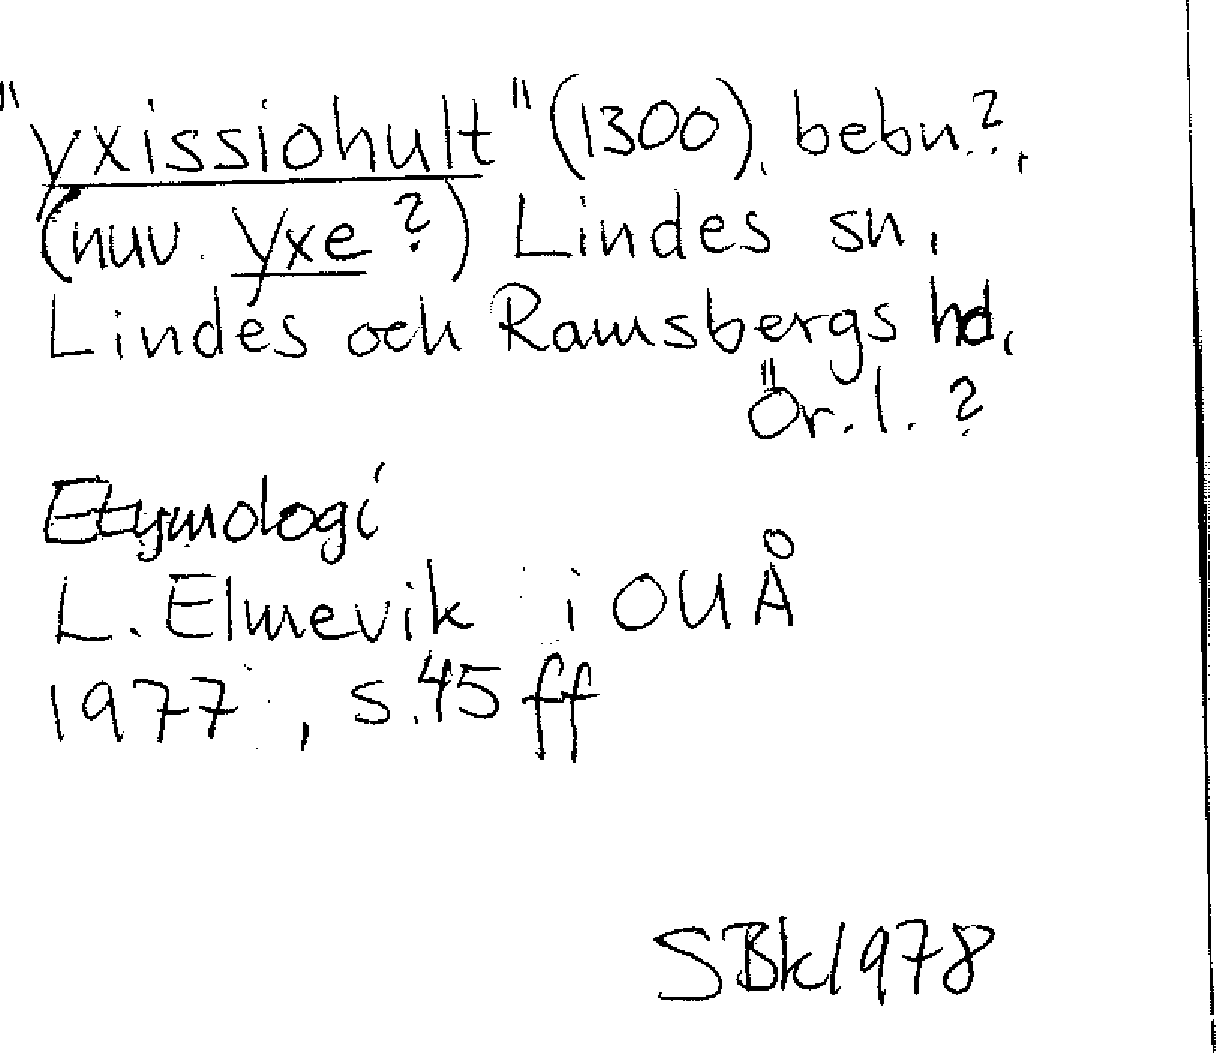 "yxissiohult" (1300), bebn?,
(nuv. Yxe?) Lindes sn,
Lindes och Ramsbergs hd,
Ör. l. ?
Etymologi
L. Elmevik i OUÅ
1977, s. 45 ff
SBk 1978